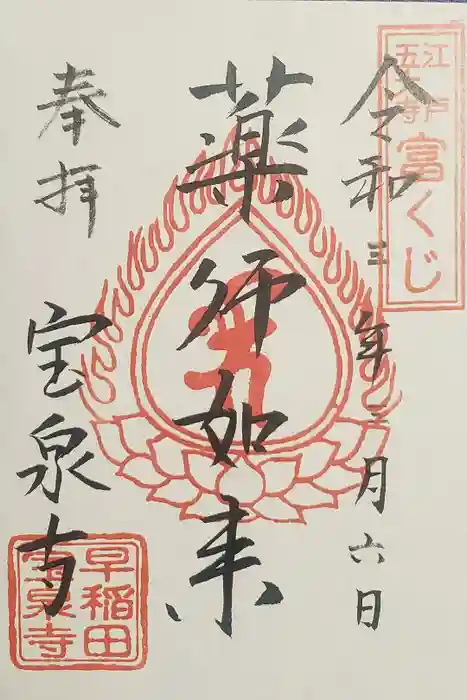 江戸
五山寺
富くじ
令和三年三月六日
薬师如来
奉拝
宝泉寺
早稲田
宝泉寺